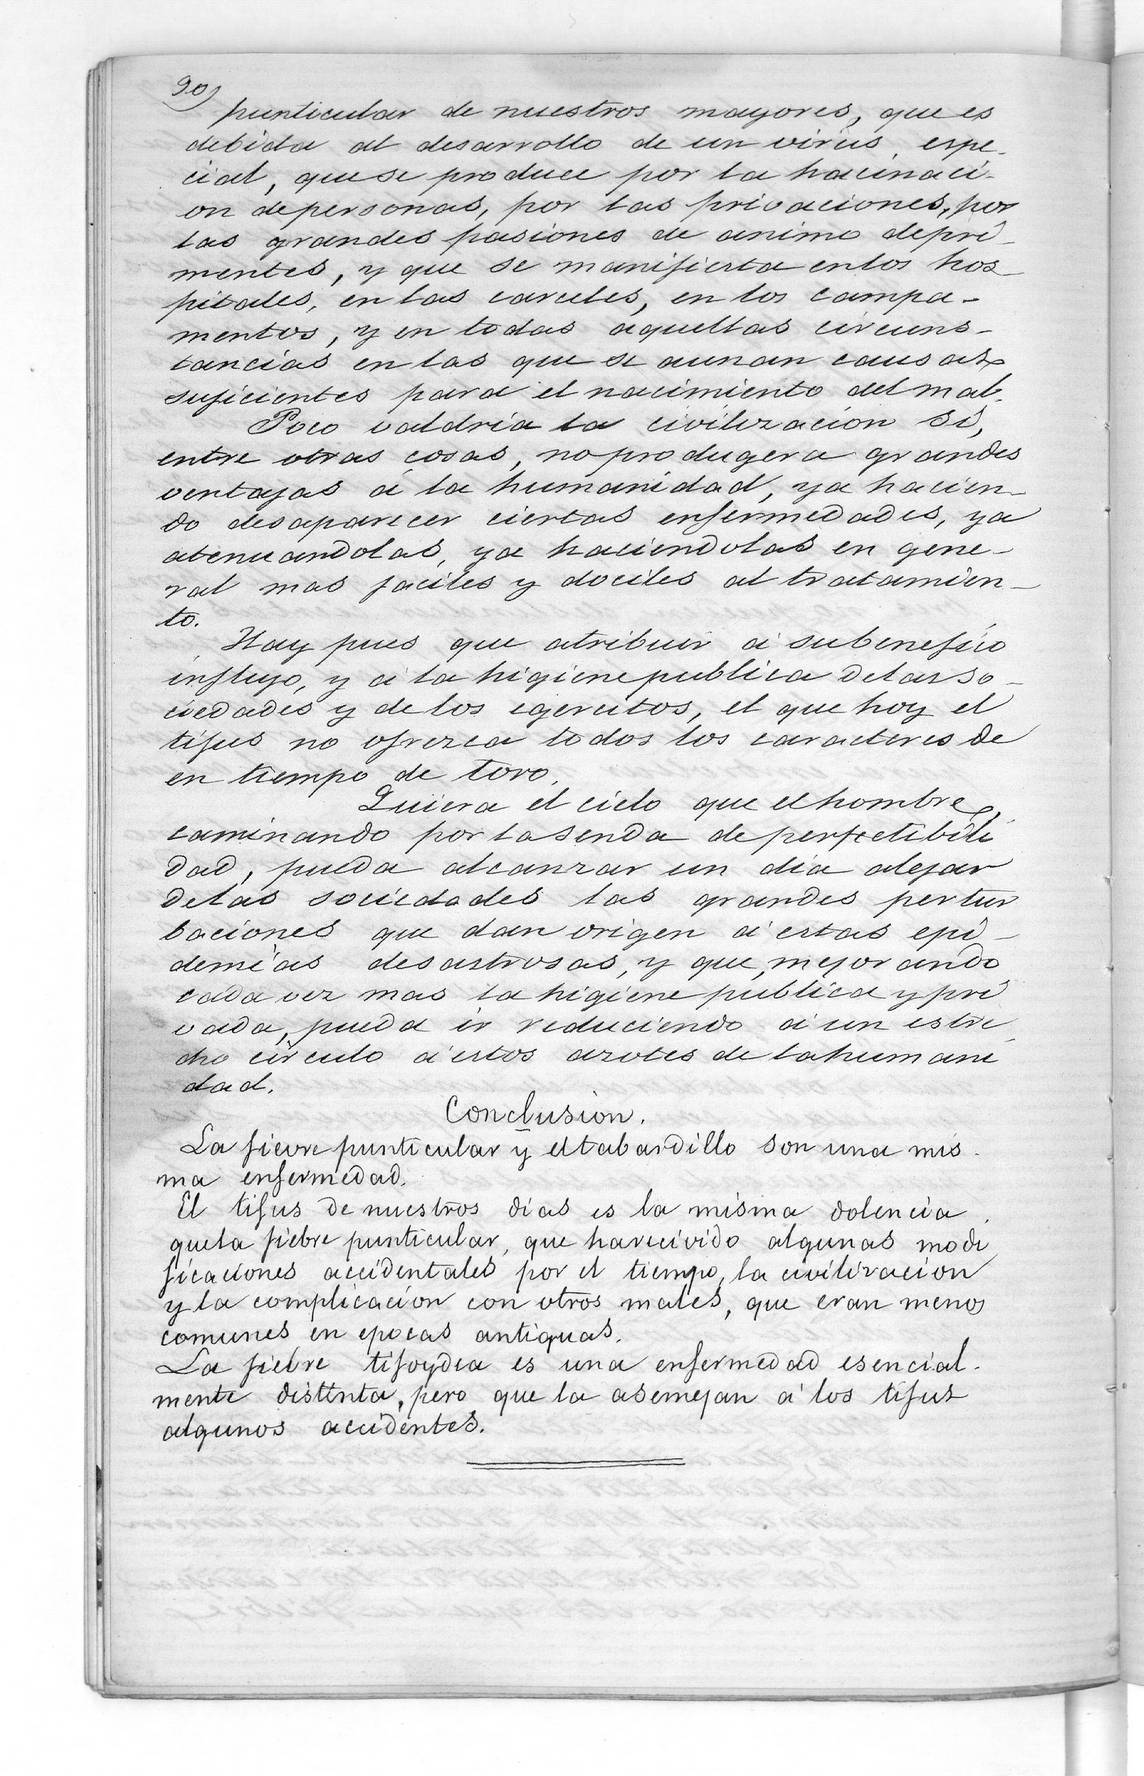 90)
punticular de nuestros mayores, que es
debida al desarrollo de un virus espe-
cial, que se produce por la hacinaci-
on de personas, por las privaciones, por
las grandes pasiones de animo depri-
mentes, y que se manifiesta en los hos-
pitales, en las carceles, en los campa-
mentos, y en todas aquellas circuns-
tancias en las que se aunan causas
suficientes para el nacimiento del mal.
Poco valdria la civilizacion si,
entre otras cosas, no produgera grandes
ventajas á la humanidad, ya hacien-
do desaparecer ciertas enfermedades, ya
atenuandolas, ya haciendolas en gene-
ral mas faciles y dociles al tratamien-
to.
Hay pues que atribuir á su benefico
influjo, y á la higiene publica de las so-
ciedades y de los egercitos, el que hoy el
tifus no ofrezca todos los caracteres de
en tiempo de Toro.
Quiera el cielo que el hombre,
caminando por la senda de perfectibili
dad, pueda alcanzar un dia alejar
de las sociedades las grandes pertur
baciones que dan origen á estas epi-
demias desastrosas, y que, mejorando
cada vez mas la higiene publica y pri
vada, pueda ir reduciendo á un estre
cho circulo á estos azotes de la humani
dad.
Conclusion.
La fievre punticular y el tabardillo son una mis-
ma enfermedad.
El tifus de nuestros dias es la misma dolencia
que la fiebre punticular, que ha recivido algunas modi
ficaciones accidentales por el tiempo, la civilizacion
y la complicacion con otros males, que eran menos
comunes en epocas antiguas.
La fiebre tifoydea es una enfermedad esencial-
mente distinta, pero que la asemejan á los tifus
algunos accidentes.